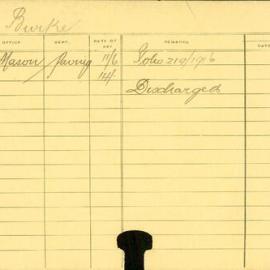 Burke
OFFICE DEPT. RATE OF PAY REMARKS DATE
Mason Paving 11/6 Folio 219/1916
11/4 Discharged